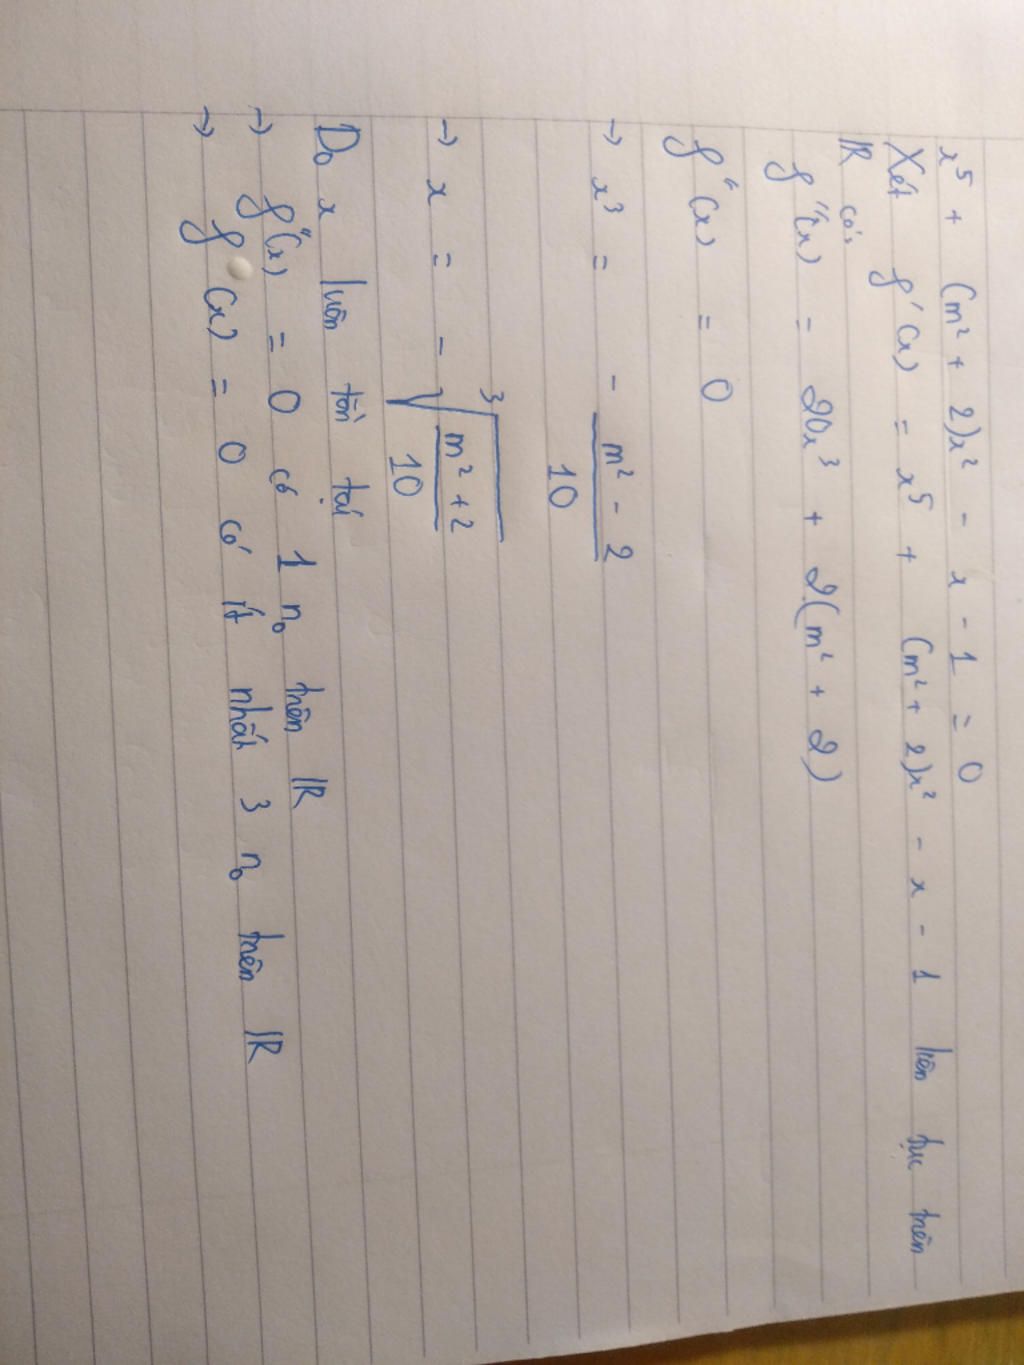 x⁵ + (m² + 2)x² - x - 1 = 0
Xét f'(x) = x⁵ + (m² + 2)x² - x - 1 liên tục trên
ℝ có:
f''(x) = 20x³ + 2(m² + 2)
f''(x) = 0
→ x³ = - \frac{m² - 2}{10}
→ x = - \sqrt[3]{\frac{m² + 2}{10}}
Do x luôn tồn tại
→ f''(x) = 0 có 1 n₀ trên ℝ
→ f(x) = 0 có ít nhất 3 n₀ trên ℝ